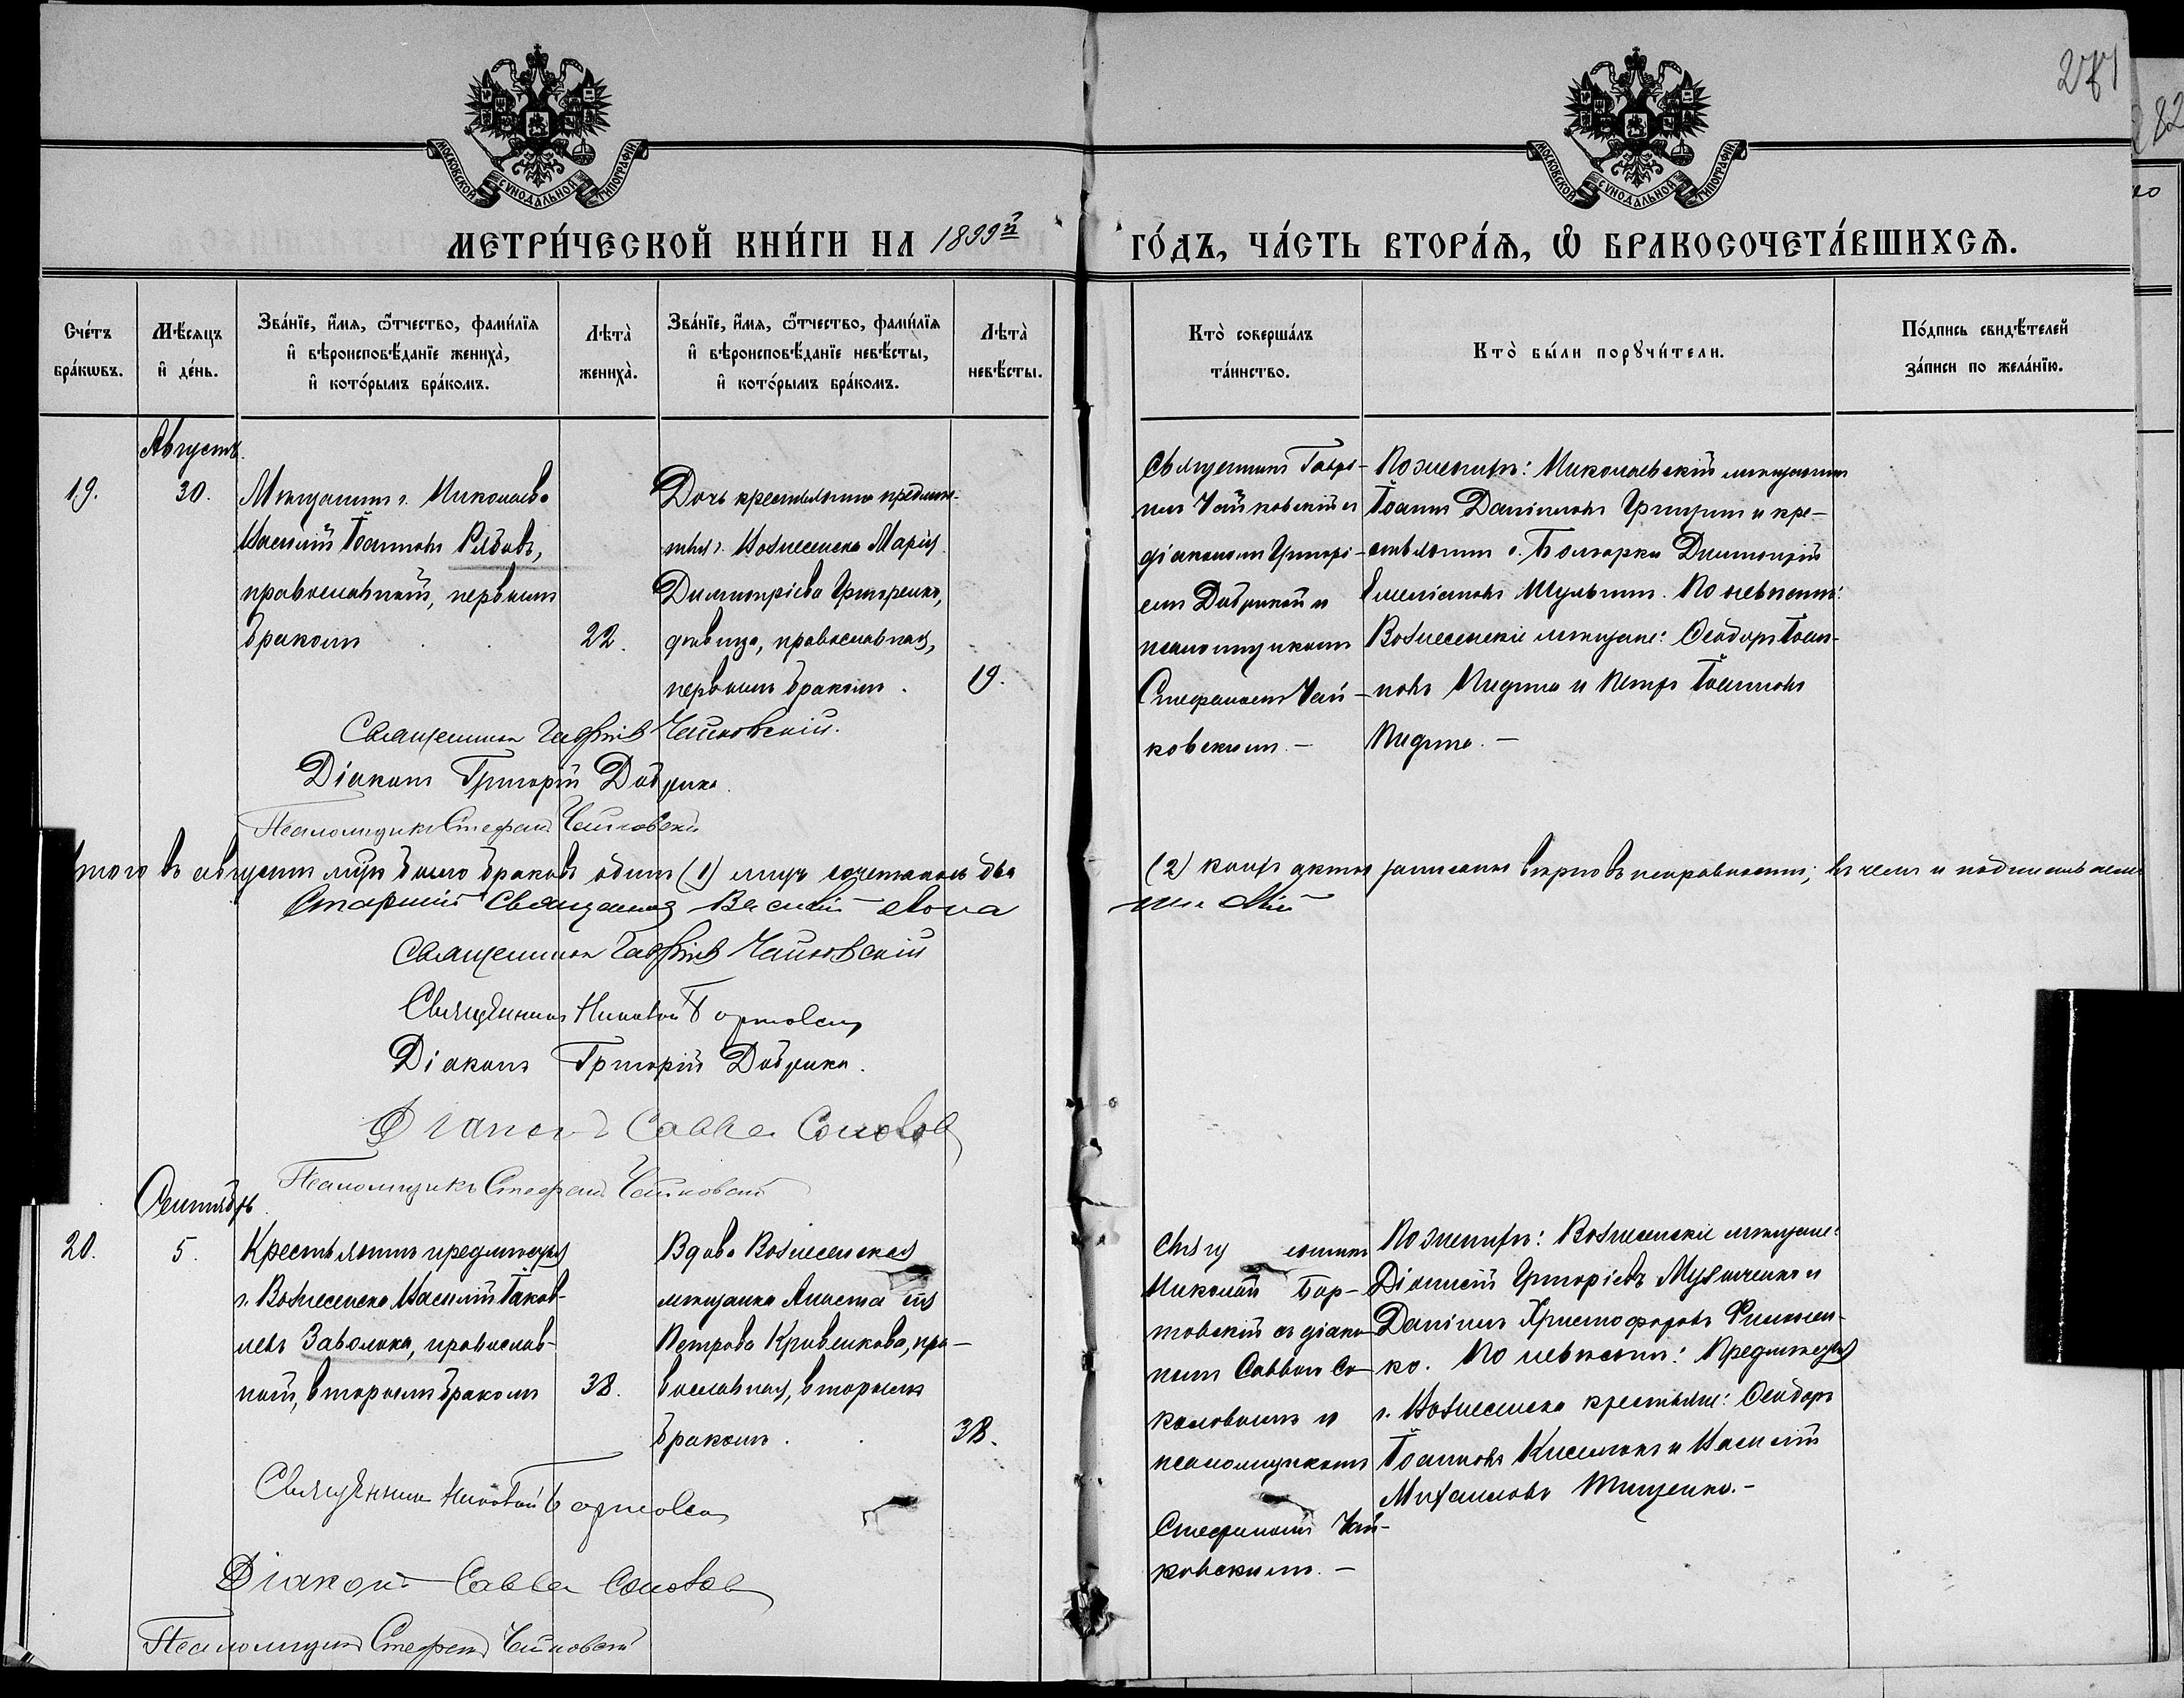 281
82
МОСКОВСКОЙ СѴНОДАЛЬНОЙ ТИПОГРАФІИ
МОСКОВСКОЙ СѴНОДАЛЬНОЙ ТИПОГРАФІИ
МЕТРИ́ЧЕСКОЙ КНИ́ГИ НА 1899й
ГО́ДЪ, ЧА́СТЬ ВТОРА́Ѧ, Ѡ҆ БРАКОСОЧЕТА́ВШИХСѦ.
Сче́тъ бра́кѡвъ.
Мѣ́сяцъ и҆ де́нь.
Зва́нїе, и҆́мя, ѻ҆́тчество, фами́лїя
и҆ вѣроисповѣ́данїе жениха̀,
и҆ кото́рымъ бра́комъ.
Лѣта̀ жениха̀.
Зва́нїе, и҆́мя, ѻ҆́тчество, фами́лїя
и҆ вѣроисповѣ́данїе невѣ́сты,
и҆ кото́рымъ бра́комъ.
Лѣта̀ невѣ́сты.
Кто̀ соверша́лъ
та́инство.
Кто̀ бы́ли порꙋчи́тели.
По́дпись свидѣ́телей
за́писи по жела́нїю.
Августъ.
19.
30.
Мѣщанинъ г. Николаева
Василій Іоанновъ Рябовъ,
православный, первымъ
бракомъ
22.
Дочь крестьянина предмѣ-
стья г. Вознесенска Марія
Димитріева Григоренко,
дѣвица, православная,
первымъ бракомъ.
19.
Священникъ Гаврі-
илъ Чайковскій съ
діакономъ Григорі-
емъ Добрикой и
псаломщикомъ
Стефаномъ Чай-
ковскимъ.—
По женихѣ: Николаевскій мѣщанинъ
Іоаннъ Даніиловъ и кре-
стьянинъ с. Болгарки Димитрій
Емеліановъ Шульгинъ. По невѣстѣ:
Вознесенскіе мѣщане: Ѳеодоръ Іоан-
новъ Пидина и Петръ Іоанновъ
Пидина.—
Священникъ Гавріилъ Чайковскій.
Діаконъ Григорій Добрика.
Псаломщикъ Стефанъ Чайковскій
Итого въ августѣ м-цѣ было браковъ одинъ (1) лицъ сочеталось два
(2) коихъ актъ записанъ вѣрно въ исправности; въ чемъ и подписываемся
Старшій Священникъ Василій
Священникъ Гавріилъ Чайковскій
Священникъ Николай Бортовскій
Діаконъ Григорій Добрика.
Діаконъ Савва Соколовъ
Псаломщикъ Стефанъ Чайковскій
Сентябрь
20.
5.
Крестьянинъ предмѣстья
г. Вознесенска Василій Іаков-
левъ Заволока, православ-
ный, вторымъ бракомъ
38.
Вдова Вознесенская
мѣщанка Анаста сія
Петрова Кривенкова, пра-
вославная, вторымъ
бракомъ.
38.
Свящ енникъ
Николай Бор-
товскій съ діако-
номъ Саввою Со-
коловымъ и
псаломщикомъ
Стефаномъ Чай-
ковскимъ.—
По женихѣ: Вознесенскіе мѣщане:
Діонисій Григоріевъ и
Даніилъ Христофоровъ Филонен-
ко. По невѣстѣ: Предмѣстья
г. Вознесенска крестьяне: Ѳеодоръ
Іоанновъ и Василій
Михаиловъ Тищенко.—
Священникъ Николай Бортовскій
Діаконъ Савва Соколовъ
Псаломщикъ Стефанъ Чайковскій